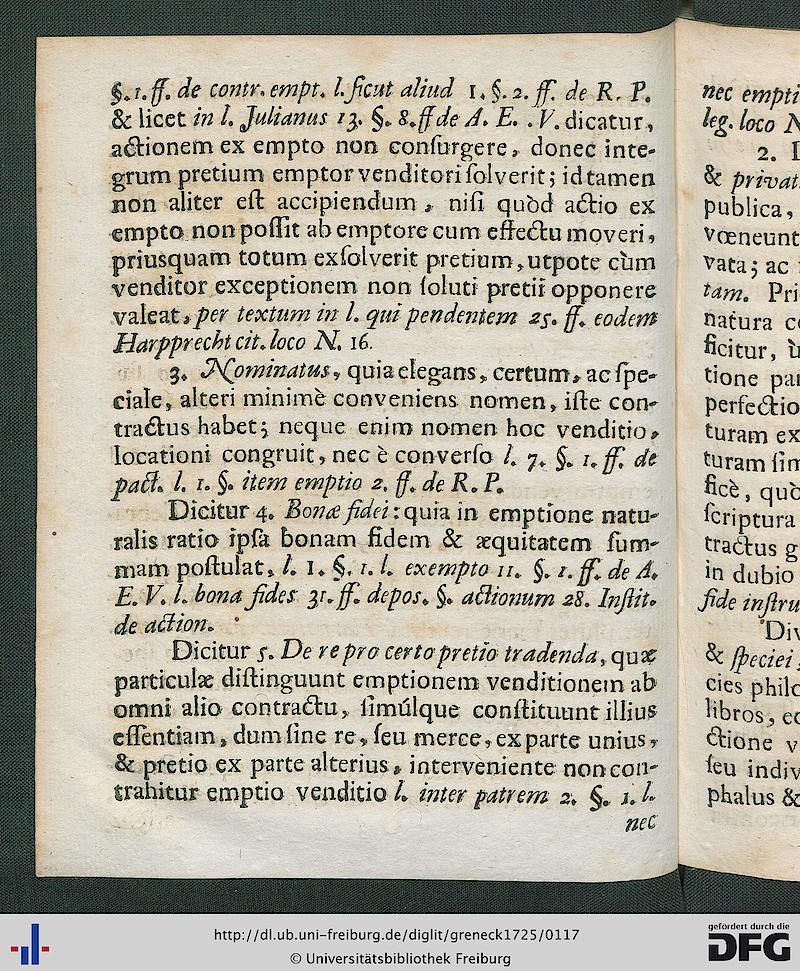 §. 1. ff. de contr. empt. l. ſicut aliud 1. §. 2. ff. de R. P.
& licet in l. Julianus 13. §. 8. ff de A. E. . V. dicatur,
actionem ex empto non conſurgere, donec inte-
grum pretium emptor venditori ſolverit; id tamen
non aliter eſt accipiendum, niſi quòd actio ex
empto non poſſit ab emptore cum effectu moveri,
priusquam totum exſolverit pretium, utpote cùm
venditor exceptionem non ſoluti pretii opponere
valeat, per textum in l. qui pendentem 25. ff. eodem
Harpprecht cit. loco N. 16.
3. Nominatus, quia elegans, certum, ac ſpe-
ciale, alteri minimè conveniens nomen, iſte con-
tractus habet; neque enim nomen hoc venditio,
locationi congruit, nec è converſo l. 7. §. 1. ff. de
pact. l. 1. §. item emptio 2. ff. de R. P.
Dicitur 4. Bonæ fidei: quia in emptione natu-
ralis ratio ipſa bonam fidem & æquitatem ſum-
mam poſtulat, l. 1. §. 1. l. exempto 11. §. 1. ff. de A.
E. V. l. bona fides 31. ff. depos. §. actionum 28. Inſtit.
de action.
Dicitur 5. De re pro certo pretio tradenda, quæ
particulæ diſtinguunt emptionem venditionem ab
omni alio contractu, ſimúlque conſtituunt illius
eſſentiam, dum ſine re, ſeu merce, ex parte unius,
& pretio ex parte alterius, interveniente non con-
trahitur emptio venditio l. inter patrem 2. §. 1. l.
nec
nec empti
leg. loco N
2. D
& privat
publica,
vœneunt
vata; ac
tam. Pri
natura co
ficitur, ù
tione par
perfectio
turam ex
turam ſim
ficè, quò
ſcriptura
tractus g
in dubio
fide inſtru
Div
& ſpeciei
cies philo
libros, eq
ctione v
ſeu indiv
phalus &
http://dl.ub.uni-freiburg.de/diglit/greneck1725/0117
© Universitätsbibliothek Freiburg
gefördert durch die
DFG